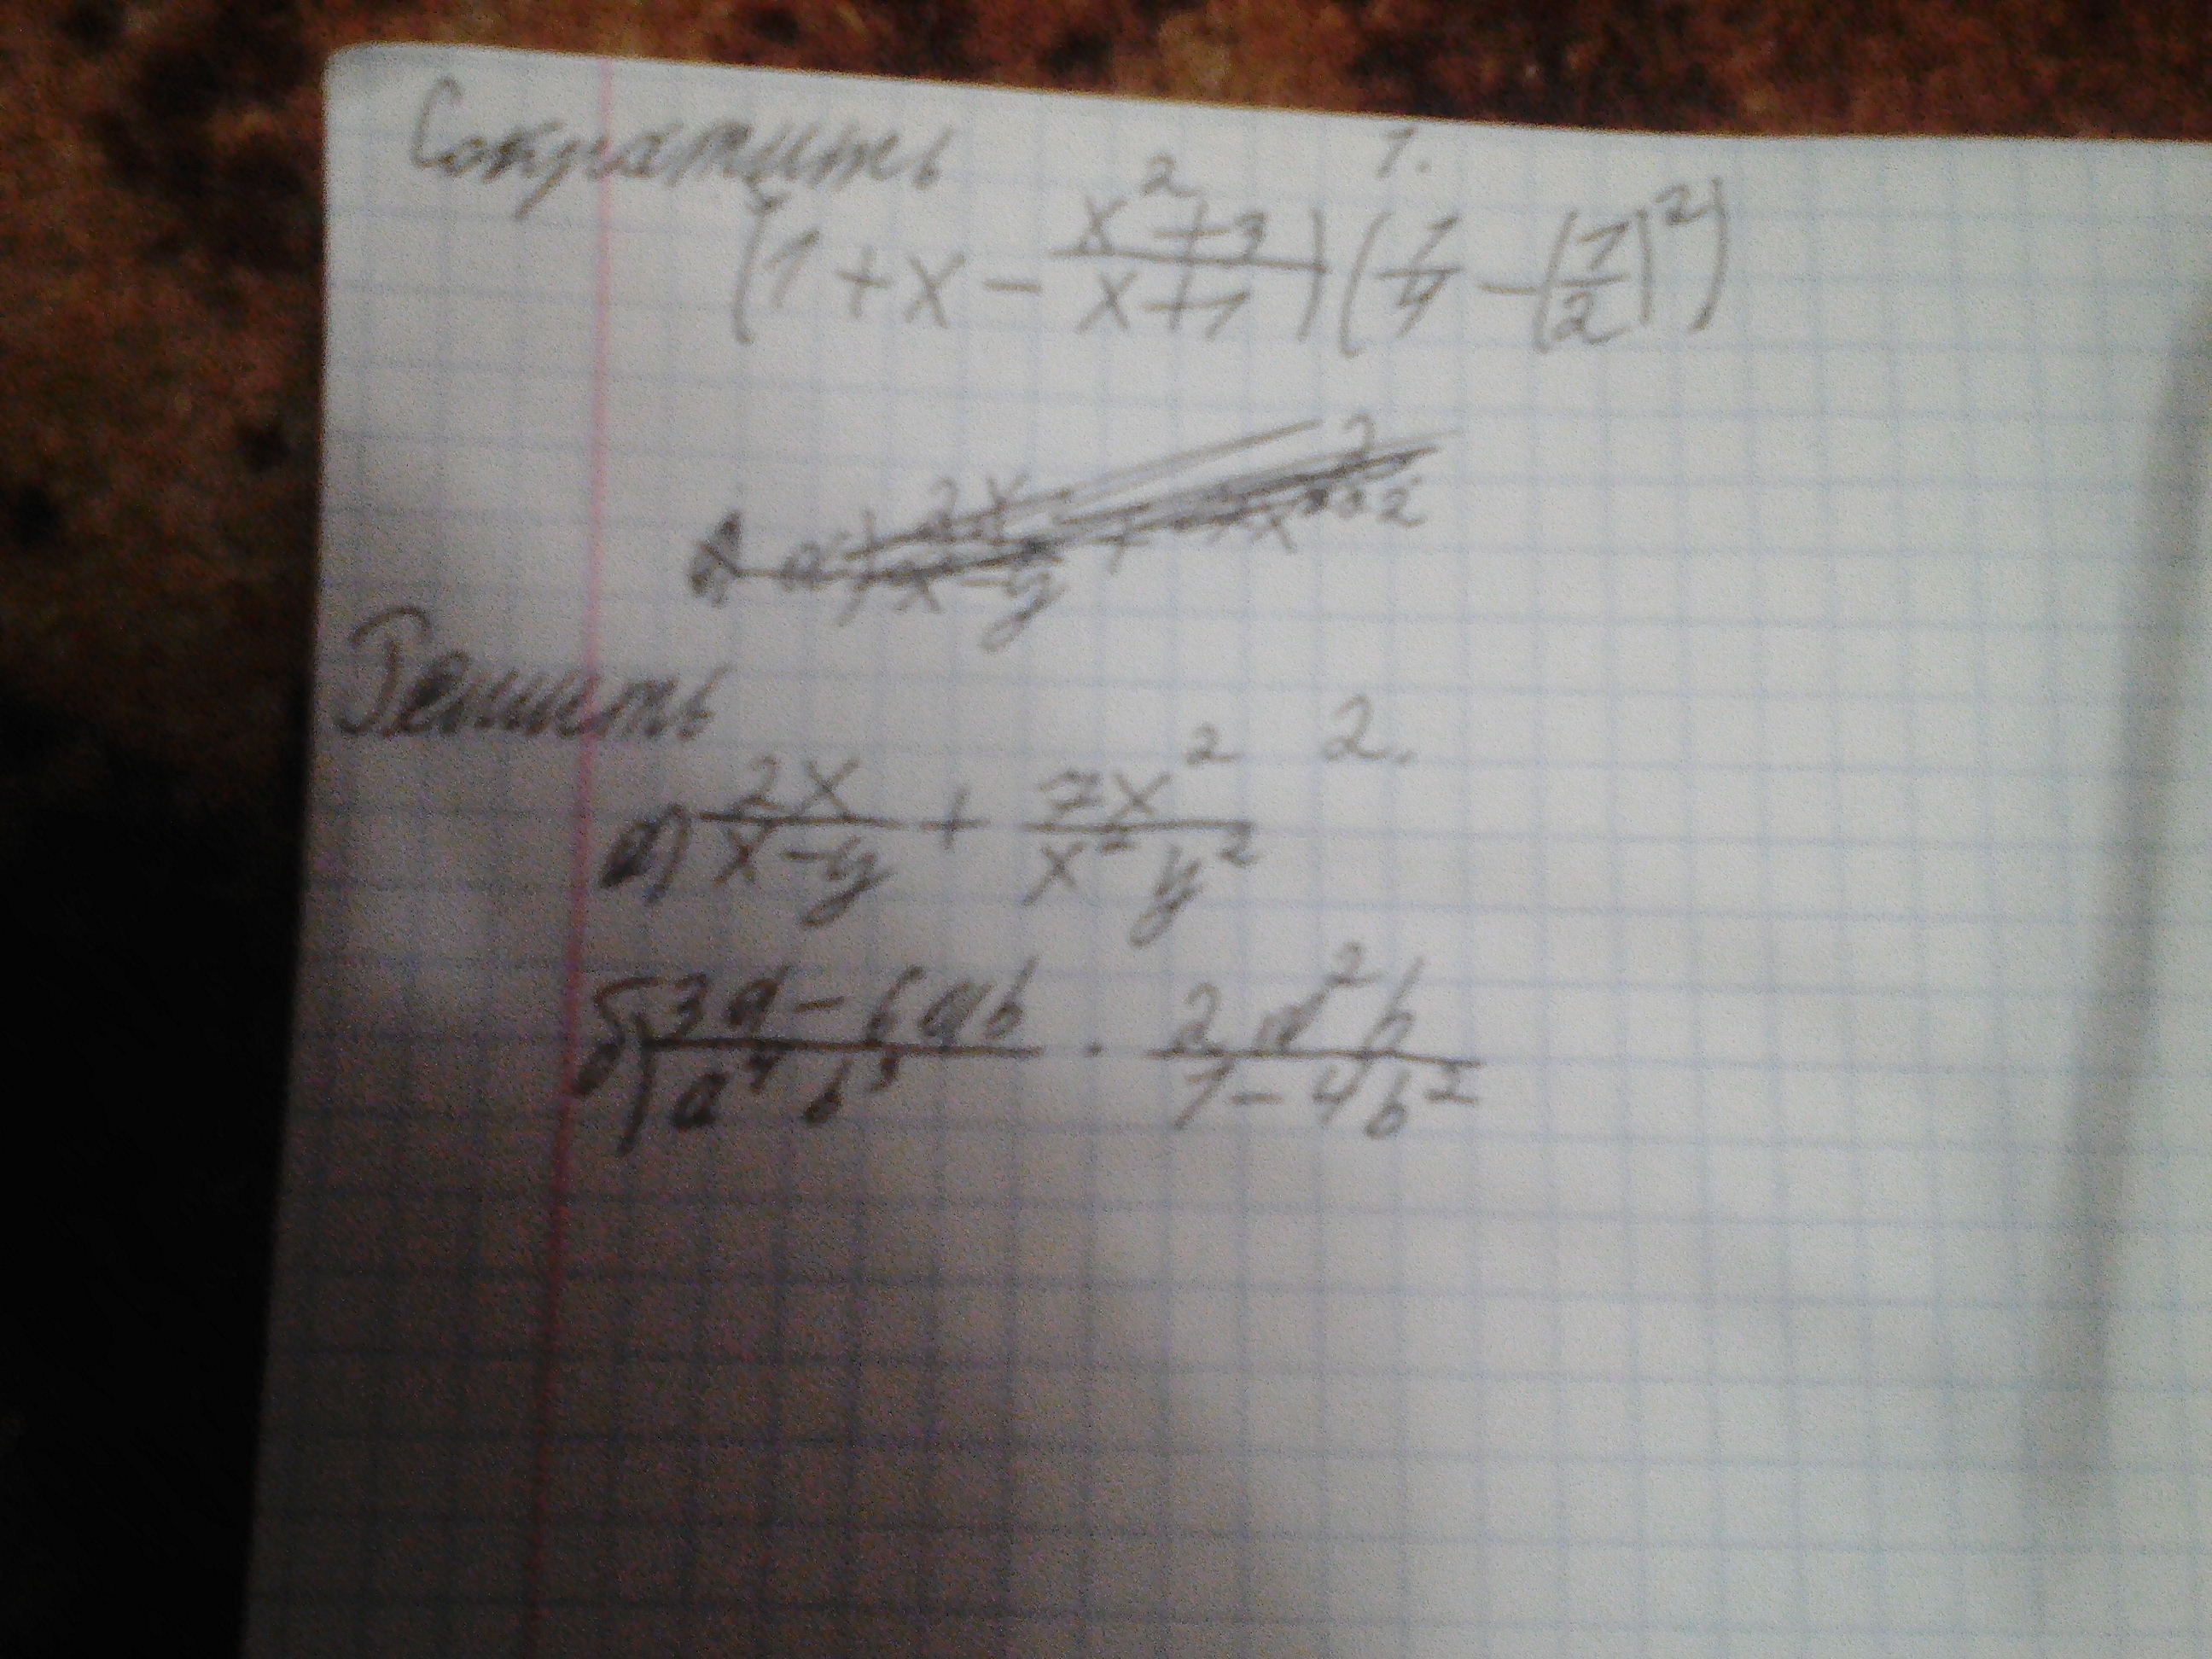 Сократить 1.
(1 + x - \frac{x^2+3}{x+1}) (\frac{1}{4} - (\frac{1}{2})^2)
Решить 2.
а) \frac{2x}{x-y} + \frac{7x^2}{x^2 y^2}
б) \frac{3a-6ab}{a^4 b^3} \cdot \frac{2a^2b}{1-4b^2}